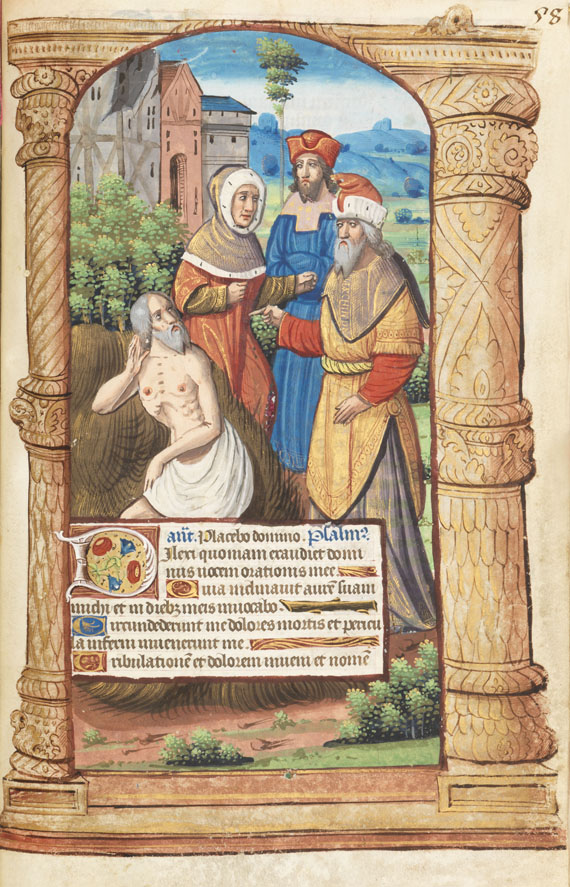 58
añ. Placebo domino. Psalm9.
Dilexi quoniam exaudiet domi
nus uocem orationis mee
Quia inclinauit aurē suam
michi et in diebꝫ meis inuocabo.
Circundederunt me dolores mortis et pericu
la inferni inuenerunt me.
Tribulationē et dolorem inueni et nomē